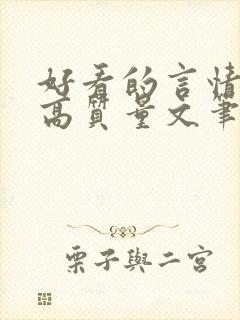 好看的言情
高質量文筆
栗子與二宮